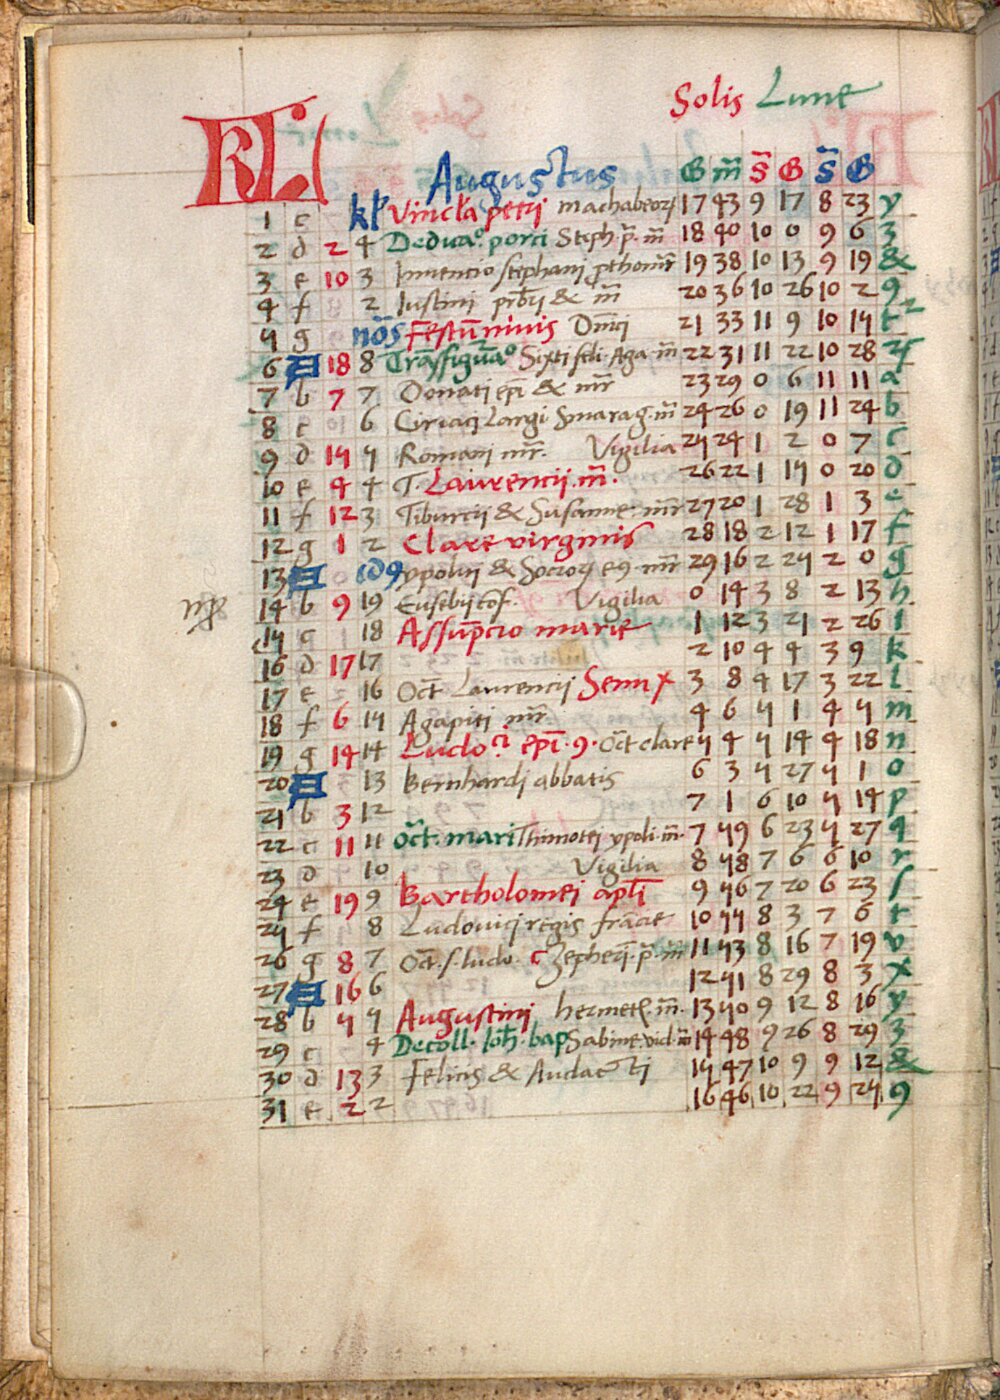 Solis Lune
KL Augustus G m̃ S̃ G S̃ G
1 c kł Vincła petri machabeorꝫ 17 43 9 17 8 23 y
2 d 2 4 Dedica.º porci Steph. p̃. m̃ 18 40 10 0 9 6 3
3 e 10 3 Inventio stephani prothomr̃ 19 38 10 13 9 19 &
4 f 2 Iustini prb̃i & m̃ 20 36 10 26 10 2 9
5 g nõs Festũ nivis Dñici 21 33 11 9 10 15 t
6 A 18 8 Trãsfigura.º Sixti feli. Aga. m̃ 22 31 11 22 10 28
7 b 7 7 Donati ep̃i & mr̃ 23 29 0 6 11 11 a
8 c 6 Ciriaci Largi Smarag. m̃ 24 26 0 19 11 24 b
9 d 15 5 Romani mr̃. Vigilia 25 24 1 2 0 7 c
10 e 4 4 T. Laurencii. m̃. 26 22 1 15 0 20 d
11 f 12 3 Tiburcij & Susanne. mr̃ 27 20 1 28 1 3 e
12 g 1 2 Clare virginis 28 18 2 12 1 17 f
13 A id9 ypoliti & Sociorꝫ e9. mr̃ 29 16 2 25 2 0 g
14 b 9 19 Eusebij cõf. Vigilia 0 14 3 8 2 13 h
15 c 18 Assũpcio marie 1 12 3 21 2 26 i
16 d 17 17 2 10 4 4 3 9 k
17 e 16 Oct̃ Laurencij 3 8 4 17 3 22 l
18 f 6 15 Agapiti mr̃ 4 6 5 1 4 5 m
19 g 14 14 Ludo.ci ep̃i. 9. Oct̃ clare 5 4 5 14 4 18 n
20 A 13 Bernhardi abbatis 6 3 5 27 5 1 o
21 b 3 12 7 1 6 10 5 14 p
22 c 11 11 oct̃. mari Thimotei ypoli. m̃. 7 59 6 23 5 27 q
23 d 10 Vigilia 8 58 7 6 6 10 r
24 e 19 9 Bartholomei apł̃i 9 56 7 20 6 23 s
25 f 8 Ludovici regis francie 10 55 8 3 7 6 t
26 g 8 7 Oct̃. s. ludo. c Zepheri. p̃. m̃ 11 53 8 16 7 19 v
27 A 16 6 12 51 8 29 8 3 x
28 b 5 5 Augustini hermet̃. m̃. 13 50 9 12 8 16 y
29 c 4 Decoll. Ioh̃. bap Sabine. vid. m̃ 14 48 9 26 8 29 3
30 d 13 3 Felicis & Audacti 15 47 10 9 9 12 &
31 e 2 2 16 46 10 22 9 25 9